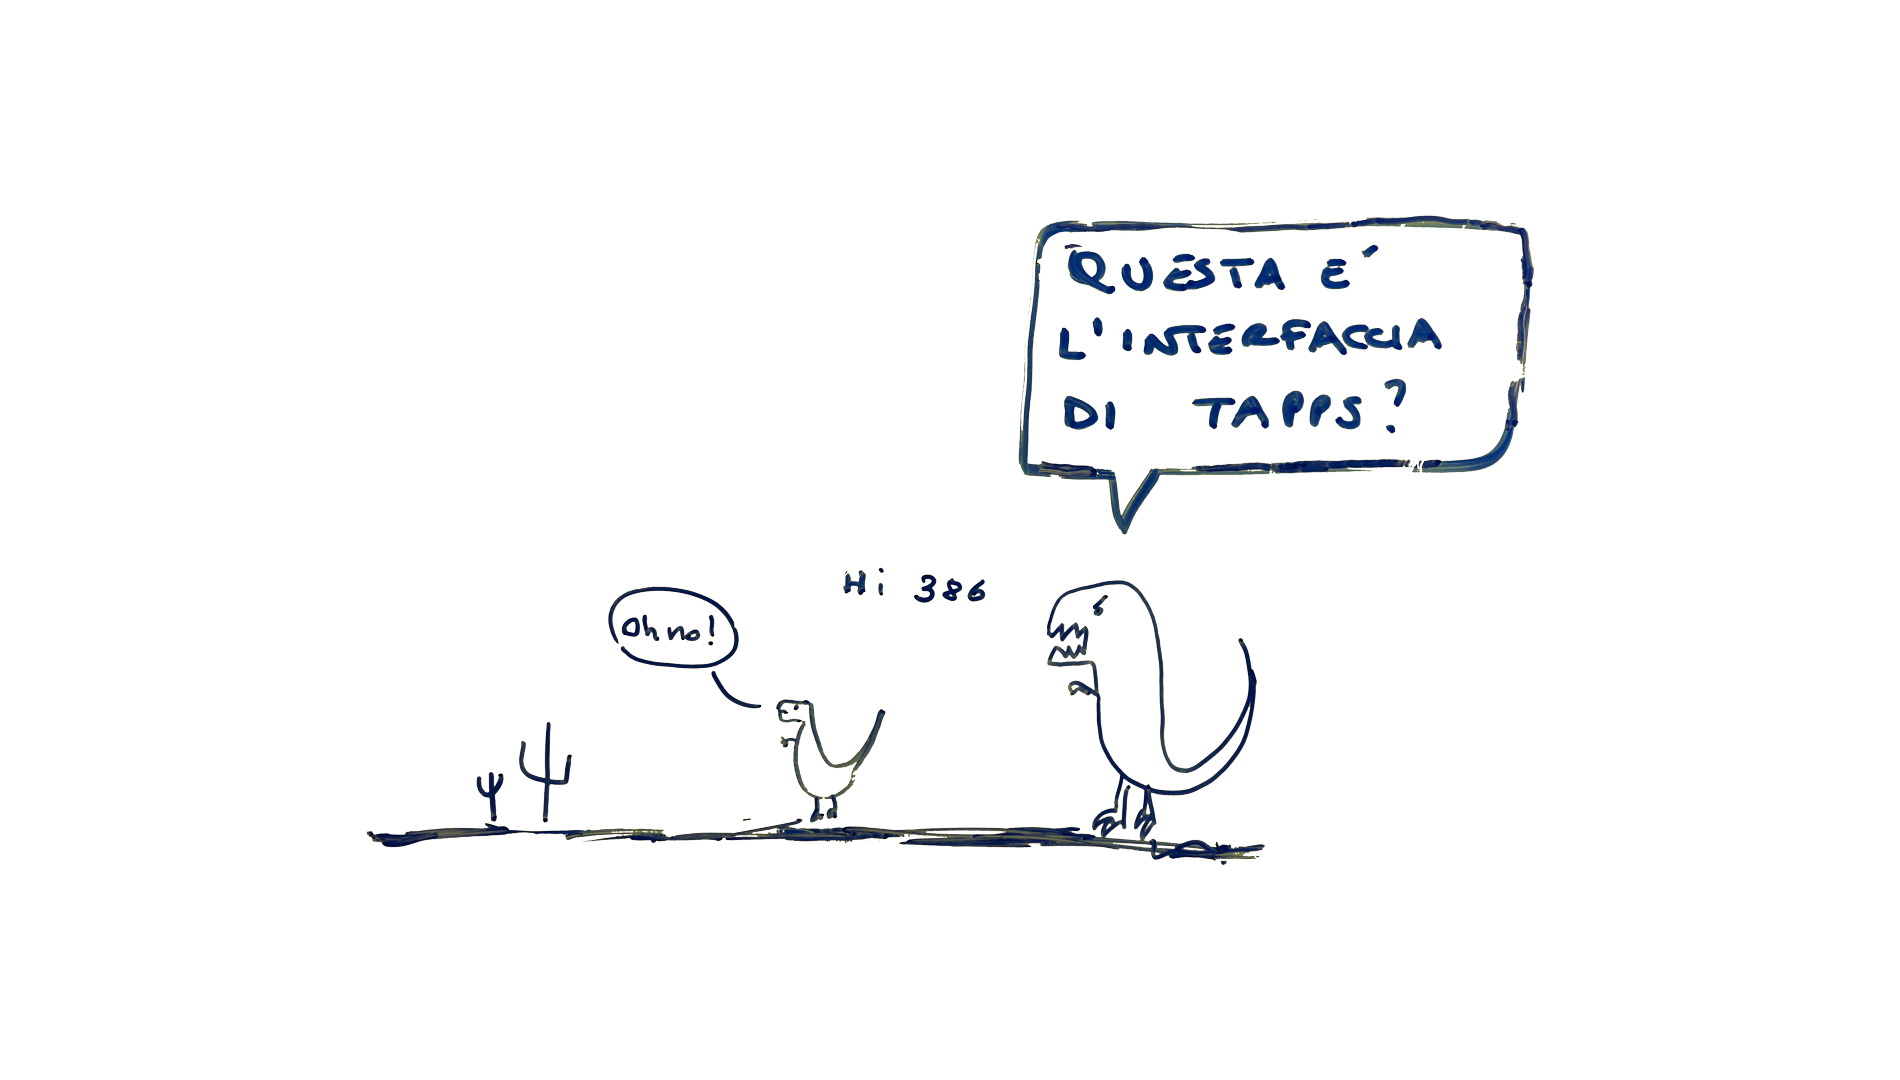 QUESTA E'
L'INTERFACCIA
DI TAPPS?
Hi 386
Oh no!